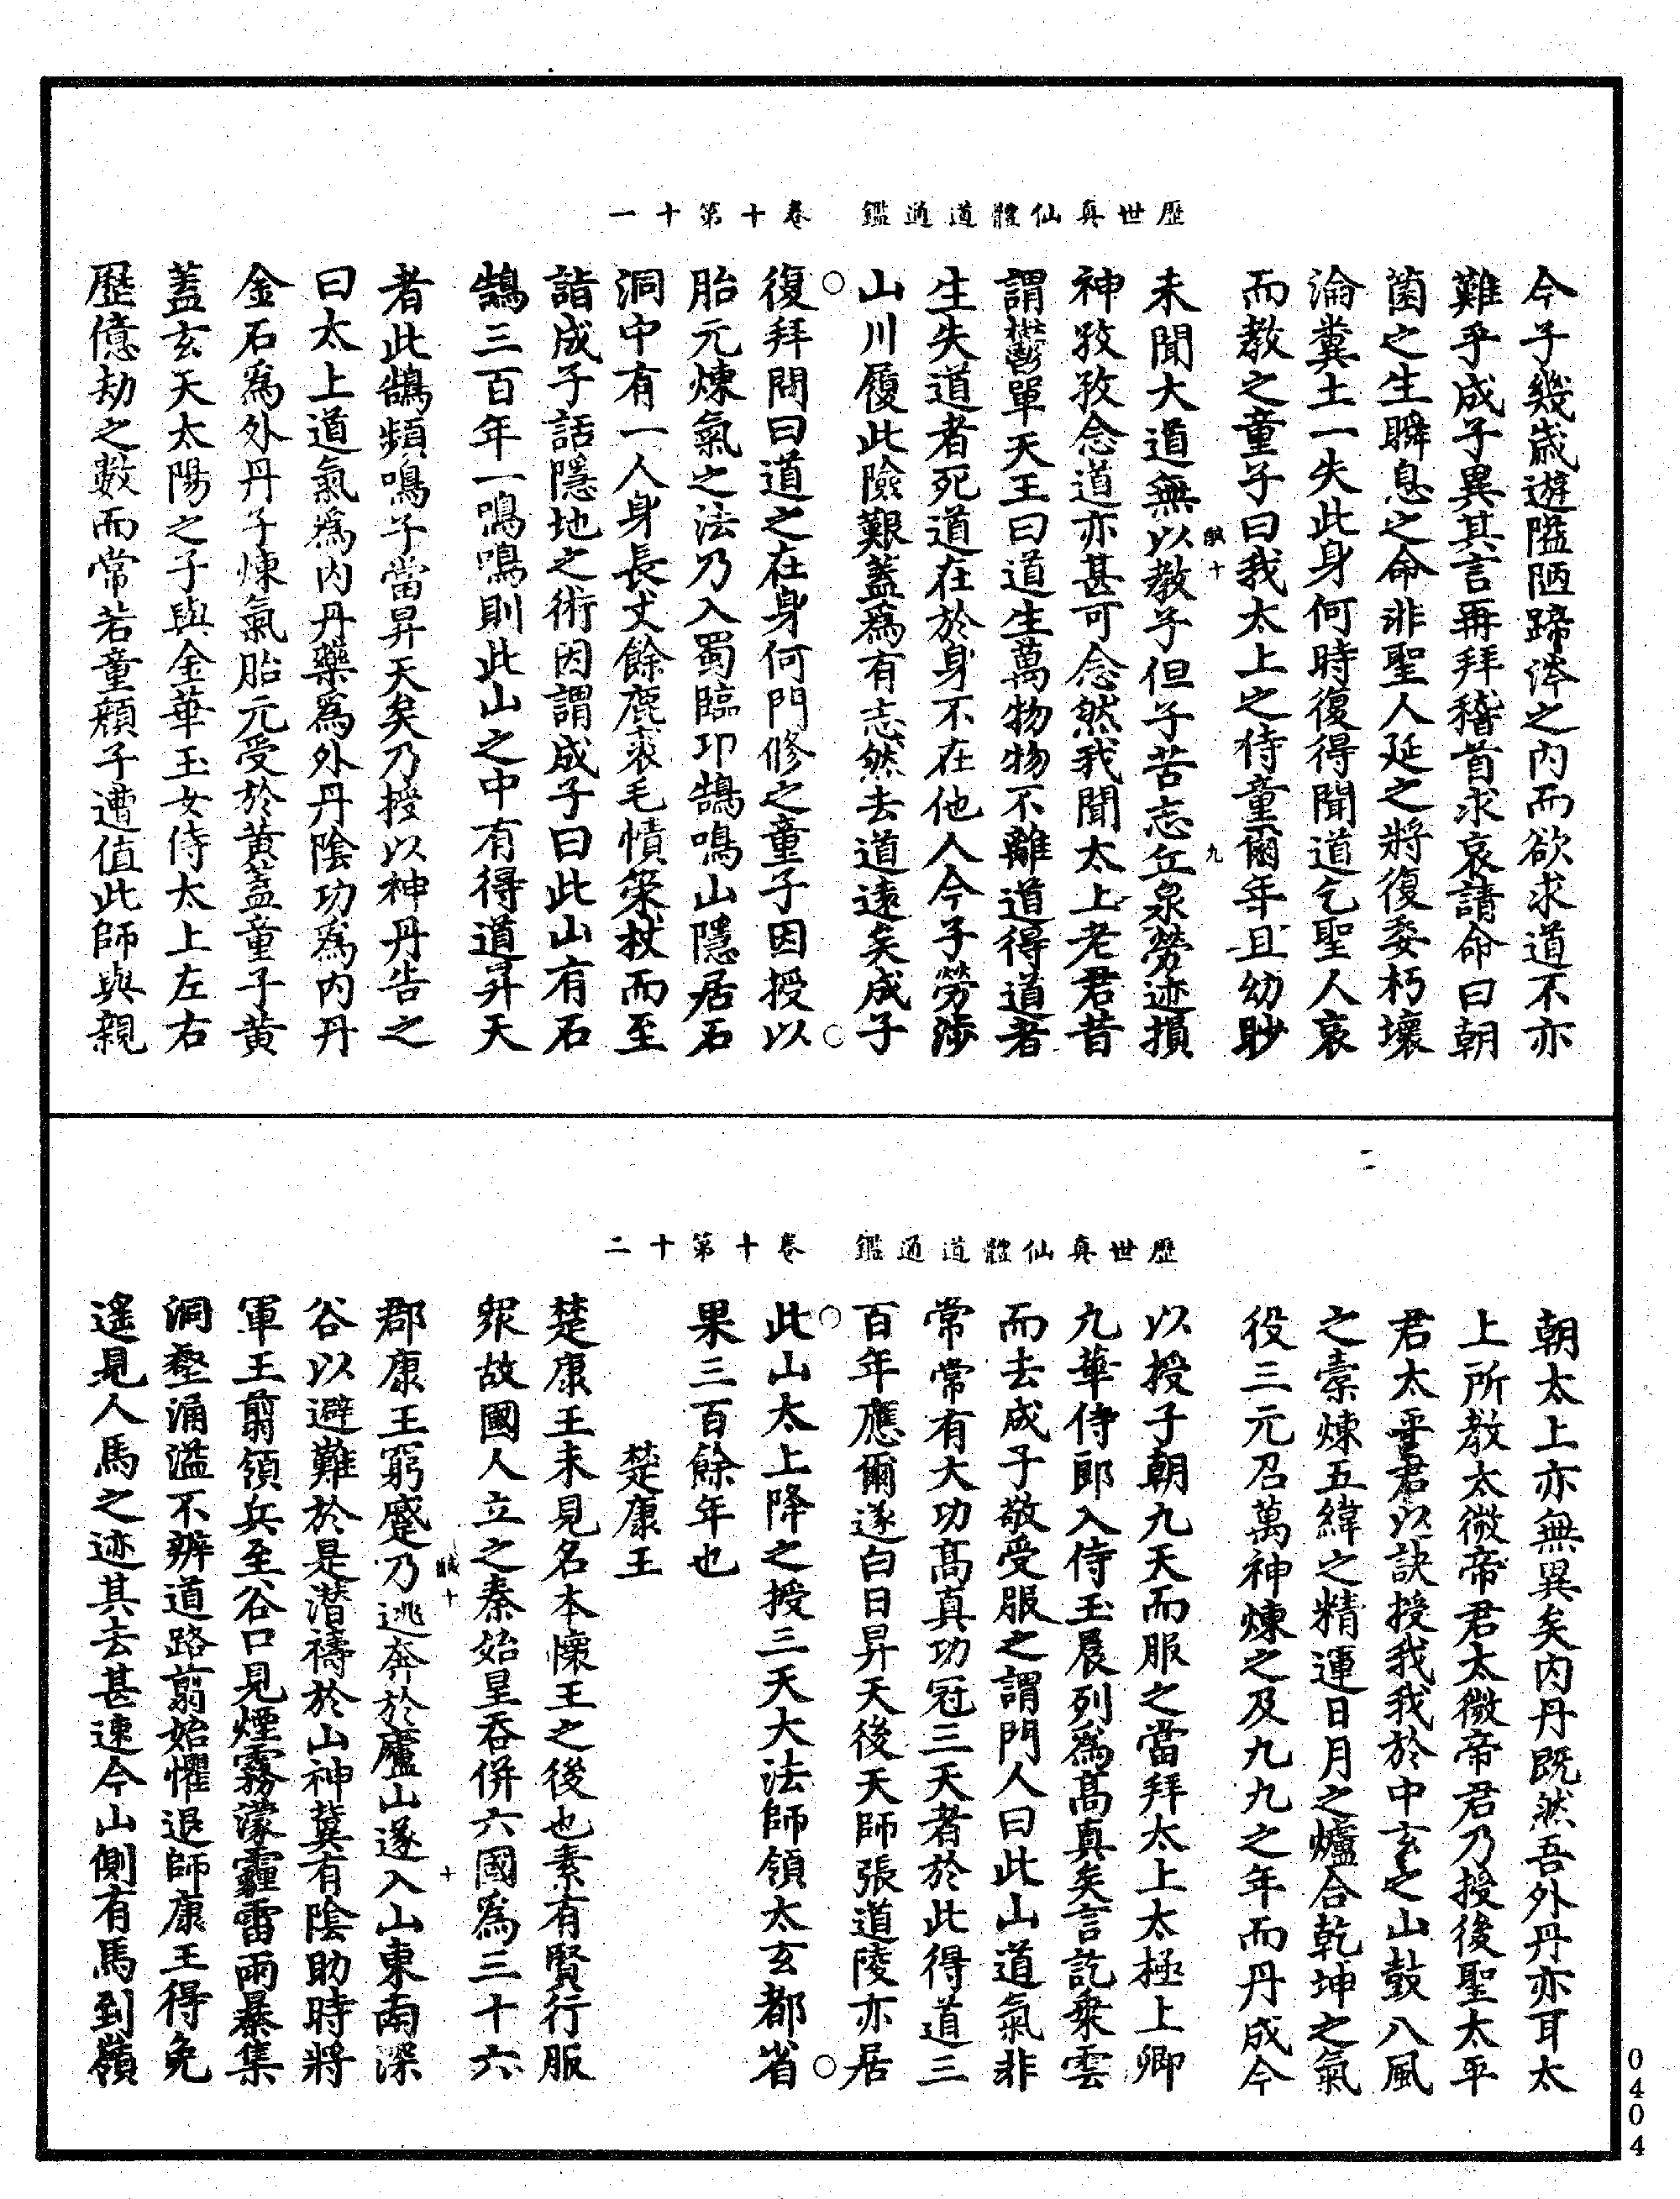 歷世真仙體道通鑑　卷十第十一
今子幾歲遊隘陋蹄涔之內而欲求道不亦
難乎成子異其言再拜稽首求哀請命曰朝
菌之生瞬息之命非聖人延之將復委朽壞
淪糞土一失此身何時復得聞道乞聖人哀
而教之童子曰我太上之侍童爾年且幼眇
十 九
未聞大道無以教子但子苦志丘泉勞迹損
神孜孜念道亦甚可念然我聞太上老君昔
謂鬱單天王曰道生萬物物不離道得道者
生失道者死道在於身不在他人今子勞涉
山川履此險艱蓋為有志然去道遠矣成子
復拜問曰道之在身何門修之童子因授以
胎元煉氣之法乃入蜀臨邛鵠鳴山隱居石
洞中有一人身長丈餘鹿裘毛幘策杖而至
詣成子話隱地之術因謂成子曰此山有石
鵠三百年一鳴鳴則此山之中有得道昇天
者此鵠頻鳴子當昇天矣乃授以神丹告之
曰太上道氣為內丹藥為外丹陰功為內丹
金石為外丹子煉氣胎元受於黃蓋童子黃
蓋玄天太陽之子與金華玉女侍太上左右
歷億劫之數而常若童顏子遭值此師與親
歷世真仙體道通鑑　卷十第十二
朝太上亦無異矣內丹既然吾外丹亦耳太
上所教太微帝君太微帝君乃授後聖太平
君太平君以訣授我我於中玄之山鼓八風
之橐煉五緯之精運日月之爐合乾坤之氣
役三元召萬神煉之及九九之年而丹成今
以授子朝九天而服之當拜太上太極上卿
九華侍郎入侍玉晨列為高真矣言訖乘雲
而去成子敬受服之謂門人曰此山道氣非
常常有大功高真功冠三天者於此得道三
百年應爾遂白日昇天後天師張道陵亦居
此山太上降之授三天大法師領太玄都省
果三百餘年也
楚康王
楚康王未見名本懷王之後也素有賢行服
衆故國人立之秦始皇吞併六國為三十六
十 十
郡康王窮蹙乃逃奔於廬山遂入山東南深
谷以避難於是潛禱於山神冀有陰助時將
軍王翦領兵至谷口見煙霧濛霾雷雨暴集
洞壑涌溢不辨道路翦始懼退師康王得免
遙見人馬之迹其去甚速今山側有馬到嶺
0404